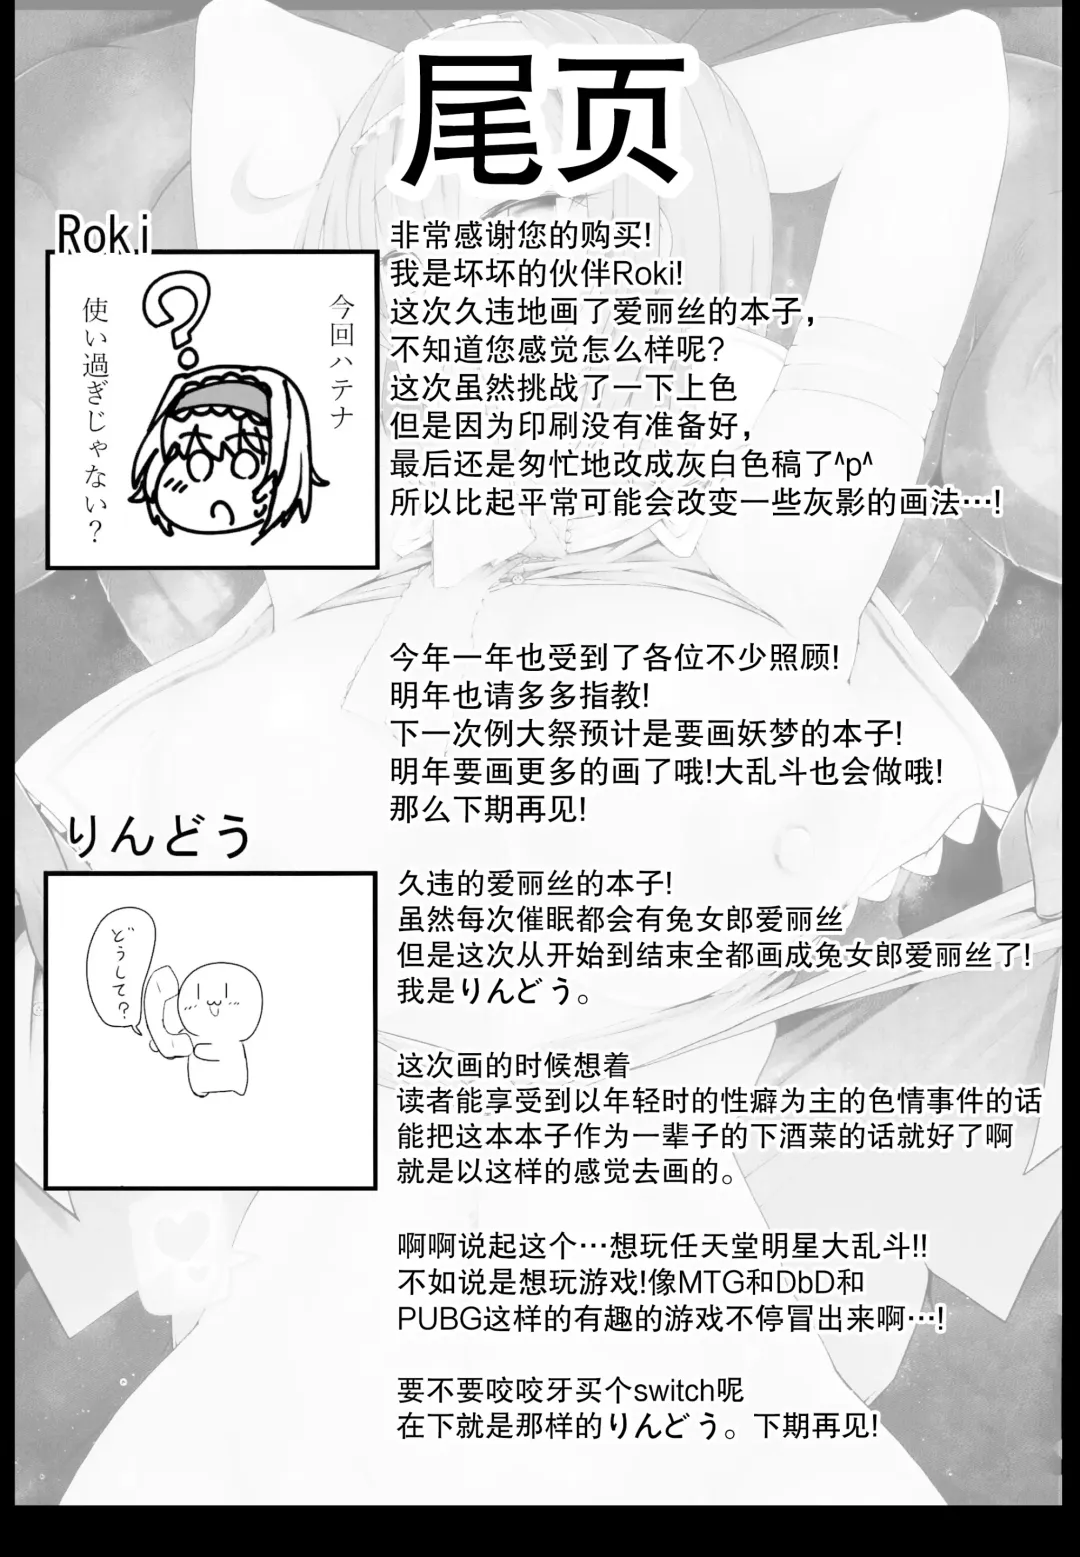 尾页
Roki
今回ハテナ
使い過ぎじゃない？
非常感谢您的购买!
我是坏坏的伙伴Roki!
这次久违地画了爱丽丝的本子,
不知道您感觉怎么样呢?
这次虽然挑战了一下上色
但是因为印刷没有准备好,
最后还是匆忙地改成灰白色稿了^p^
所以比起平常可能会改变一些灰影的画法…!
今年一年也受到了各位不少照顾!
明年也请多多指教!
下一次例大祭预计是要画妖梦的本子!
明年要画更多的画了哦!大乱斗也会做哦!
那么下期再见!
りんどう
どうして?
久违的爱丽丝的本子!
虽然每次催眠都会有兔女郎爱丽丝
但是这次从开始到结束全都画成兔女郎爱丽丝了!
我是りんどう。
这次画的时候想着
读者能享受到以年轻时的性癖为主的色情事件的话
能把这本本子作为一辈子的下酒菜的话就好了啊
就是以这样的感觉去画的。
啊啊说起这个…想玩任天堂明星大乱斗!!
不如说是想玩游戏!像MTG和DbD和
PUBG这样的有趣的游戏不停冒出来啊…!
要不要咬咬牙买个switch呢
在下就是那样的りんどう。下期再见!